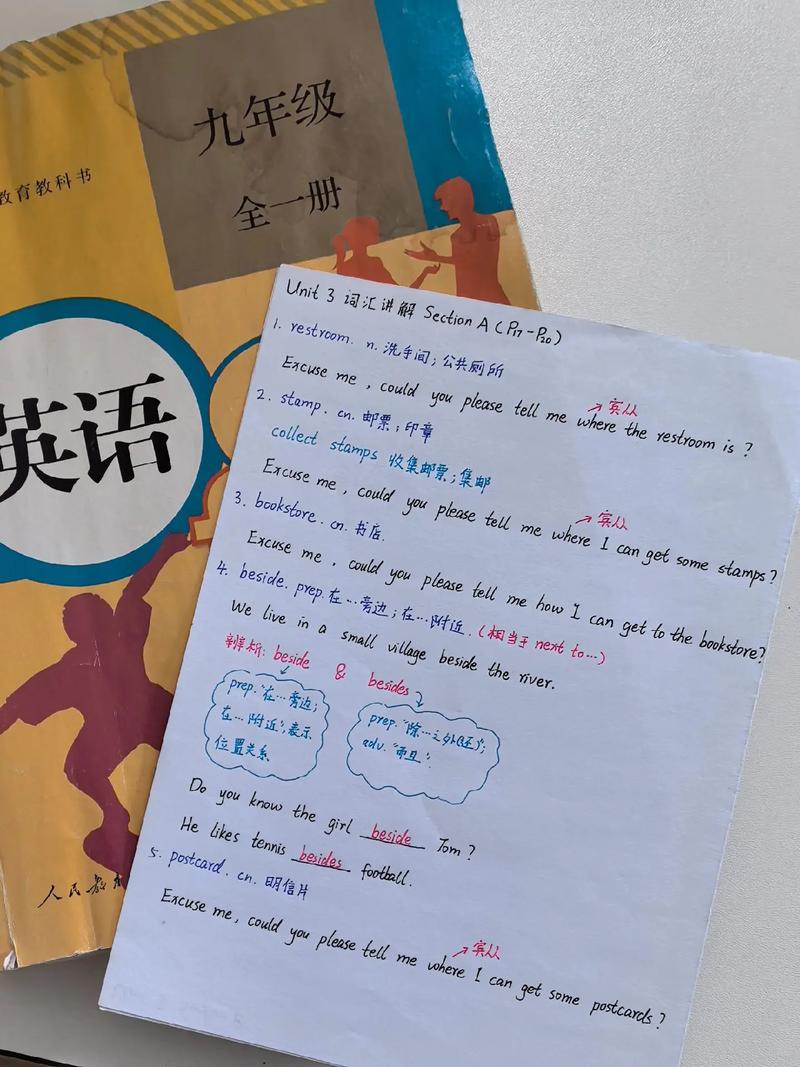 九年级
全一册
教育教科书
英语
人民教育
Unit 3 词汇讲解 Section A (P17-P20)
1. restroom. n. 洗手间；公共厕所
Excuse me, could you please tell me where the restroom is?
宾从
2. stamp. cn. 邮票；印章
collect stamps 收集邮票；集邮
Excuse me, could you please tell me where I can get some stamps?
宾从
3. bookstore. cn. 书店.
Excuse me, could you please tell me how I can get to the bookstore?
4. beside. prep. 在…旁边；在…附近.(相当于 next to…)
We live in a small village beside the river.
辨析: beside & besides
prep. "在…旁边;
在…附近", 表示
位置关系
prep. "除…之外(还)";
adv. "而且".
Do you know the girl beside Tom?
He likes tennis besides football.
5. postcard. cn. 明信片
Excuse me, could you please tell me where I can get some postcards?
宾从